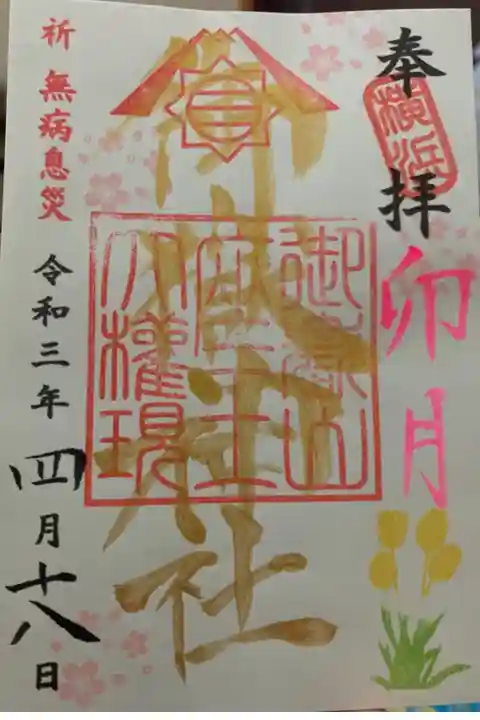 奉拝
横浜
卯月
御嶽神社
御嶽山
大權現
祈 無病息災
令和三年四月十八日